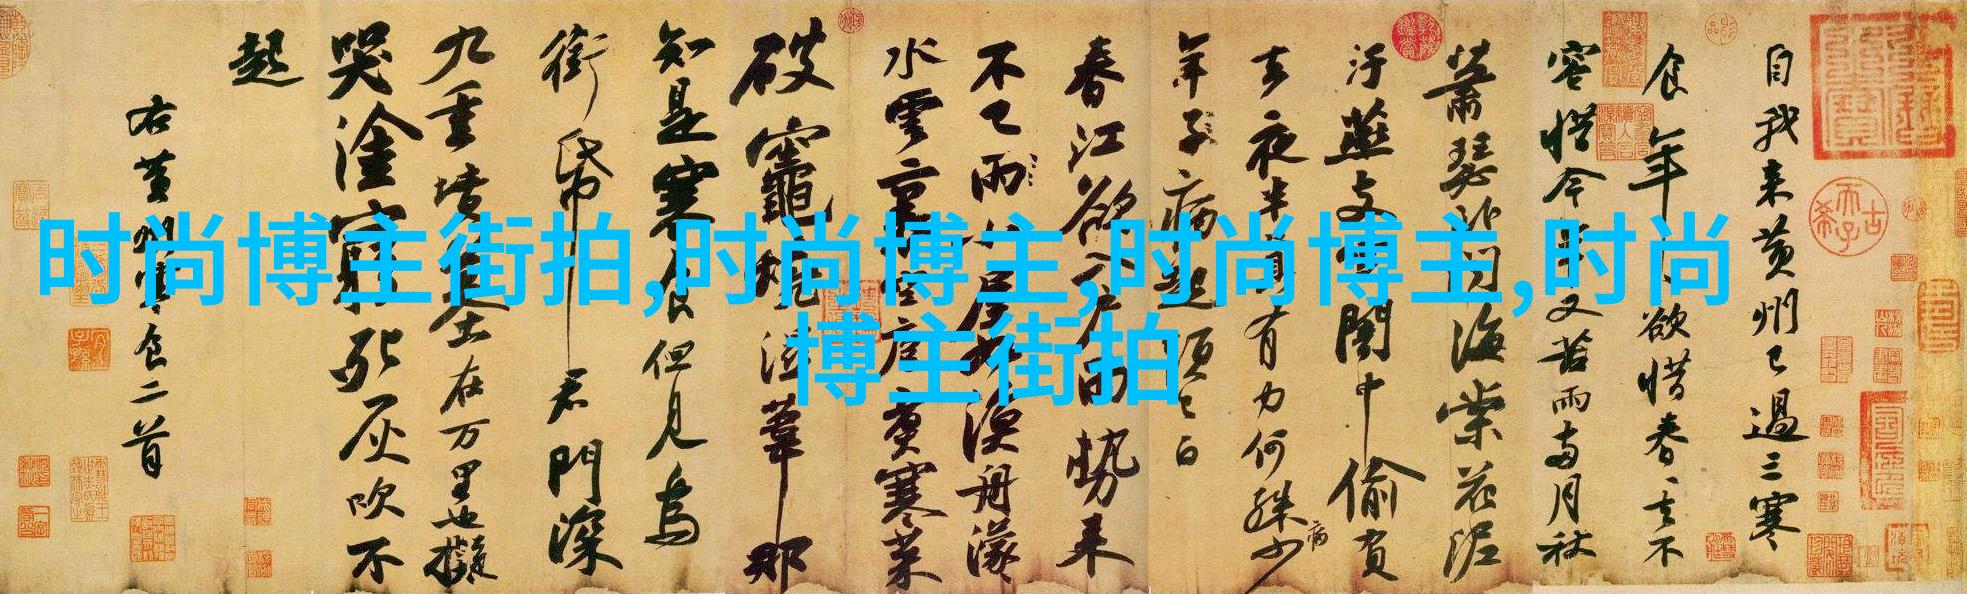 时尚博主街拍,时尚博主,时尚博主,时尚
博主街拍
自我来黄州已過三寒
食年〻欲惜春〻去不
容惜今年又苦雨兩月秋
蕭瑟卧聞海棠花泥
汙燕支雪闇中偷負
去夜半真有力何殊少
病
年子病起頭已白
春江欲入户雨勢来
不已雨小屋如漁舟濛〻
水雲裏空庖煮寒菜
破竈燒濕葦那
知是寒食但見烏
銜帋君門深
九重墳墓在万里也擬
哭塗窮死灰吹不
起
右黄州寒食二首